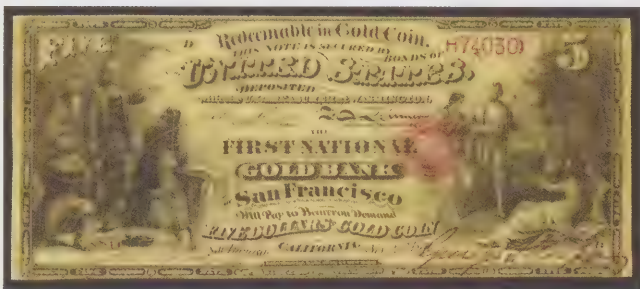 Redeemable in Gold Coin.
FIVE D H74030 5
THIS NOTE IS SECURED BY BONDS OF
UNITED STATES,
DEPOSITED
THE
FIRST NATIONAL
GOLD BANK
San Francisco
Will Pay to Bearer on Demand
FIVE DOLLARS GOLD COIN
CALIFORNIA.